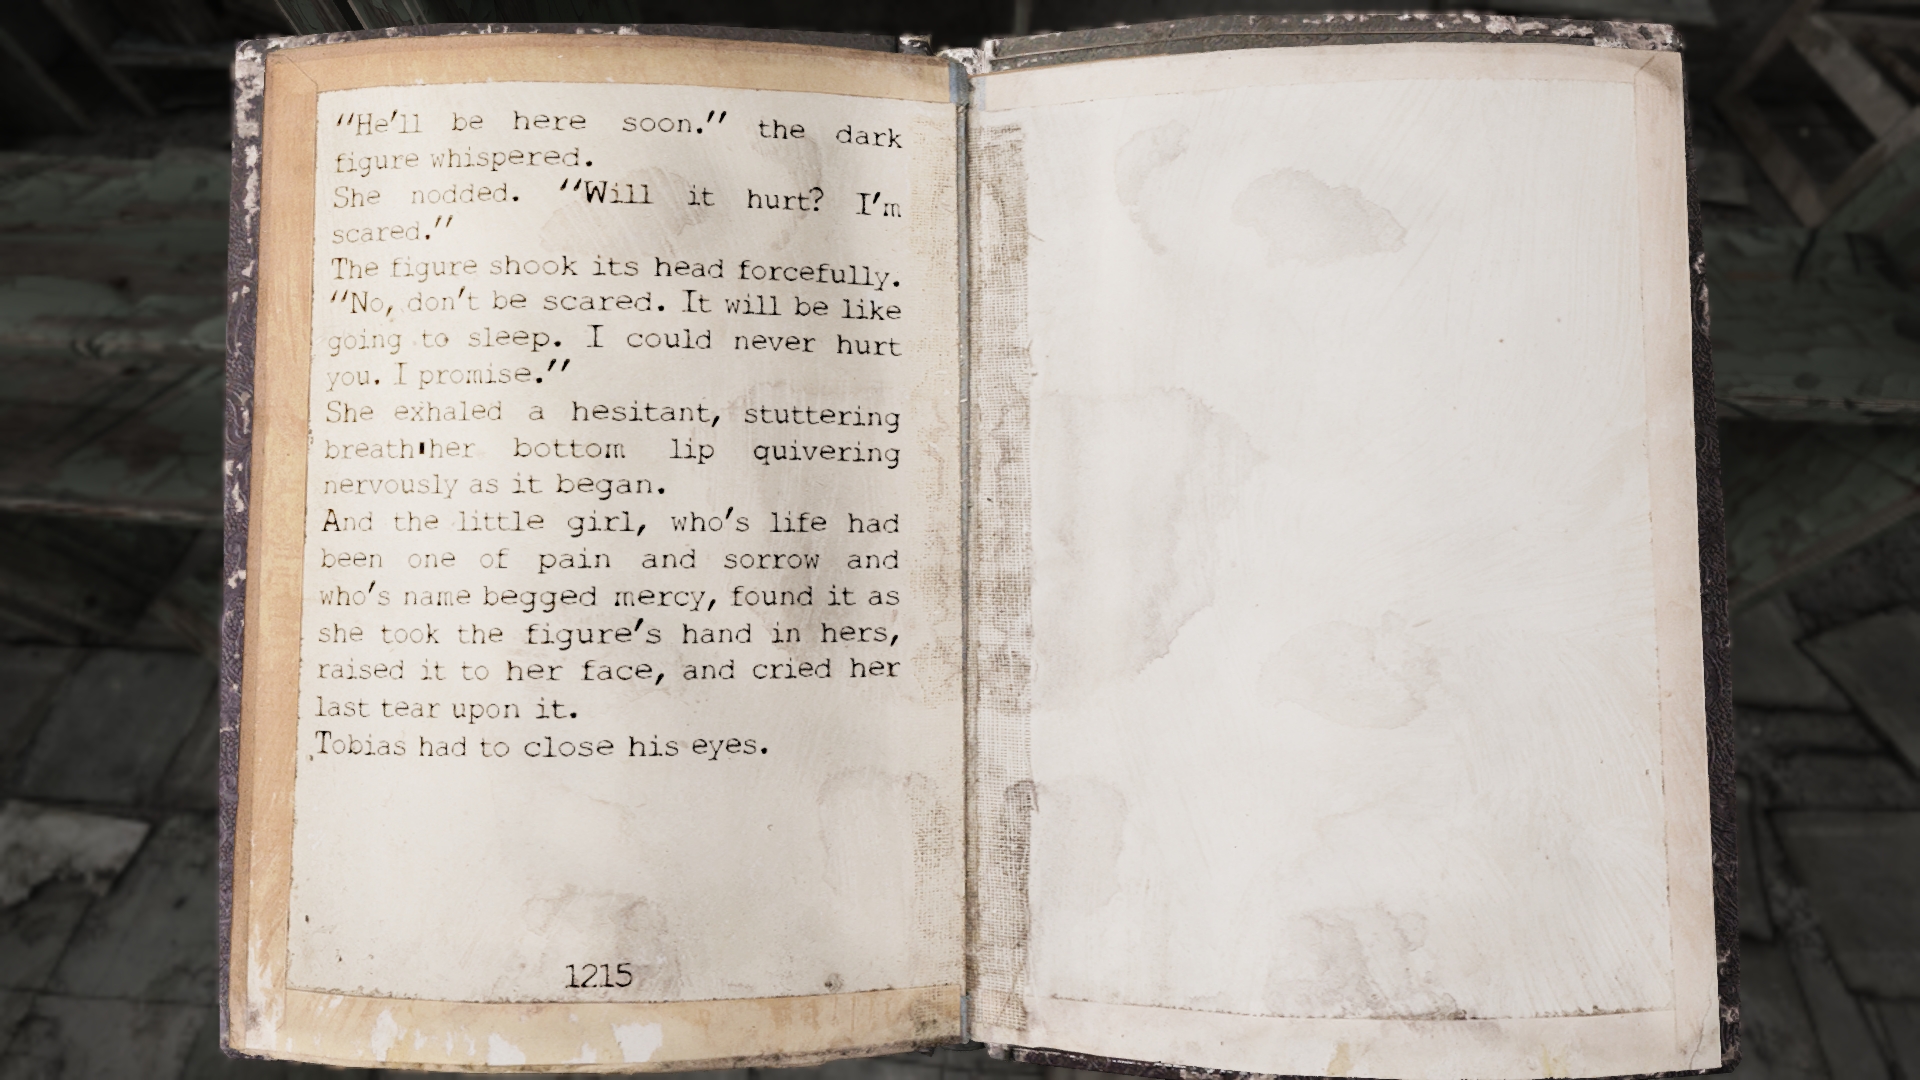 "He'll be here soon." the dark
figure whispered.
She nodded. "Will it hurt? I'm
scared."
The figure shook its head forcefully.
"No, don't be scared. It will be like
going to sleep. I could never hurt
you. I promise."
She exhaled a hesitant, stuttering
breath her bottom lip quivering
nervously as it began.
And the little girl, who's life had
been one of pain and sorrow and
who's name begged mercy, found it as
she took the figure's hand in hers,
raised it to her face, and cried her
last tear upon it.
Tobias had to close his eyes.
1215